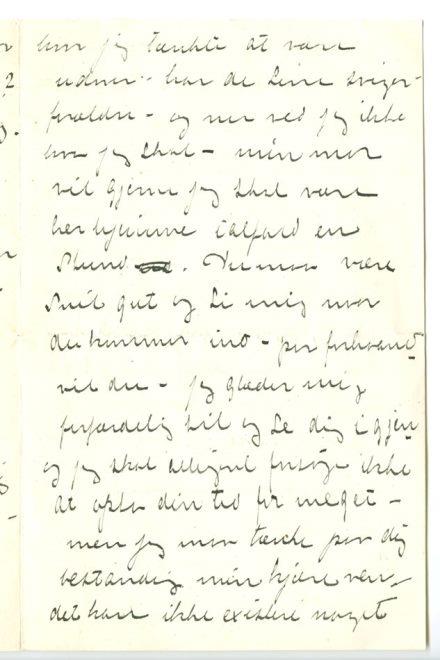 hvor jeg tænkte at være
udover - har de sine sviger-
forældre - og nu ved jeg ikke
hvor jeg skal - min mor
vil gjerne jeg skal være
her hjemme ialfald en
stund. Du maa være
snil gut og si mig naar
du kommer ind - paa forhaand
vil du - jeg glæder mig
forfærdelig til og se dig igjen
og jeg skal alligevel forsøge ikke
at opta din tid for meget -
men jeg maa tænke paa dig
bestandig min kjære ven -
det kan ikke existere noget